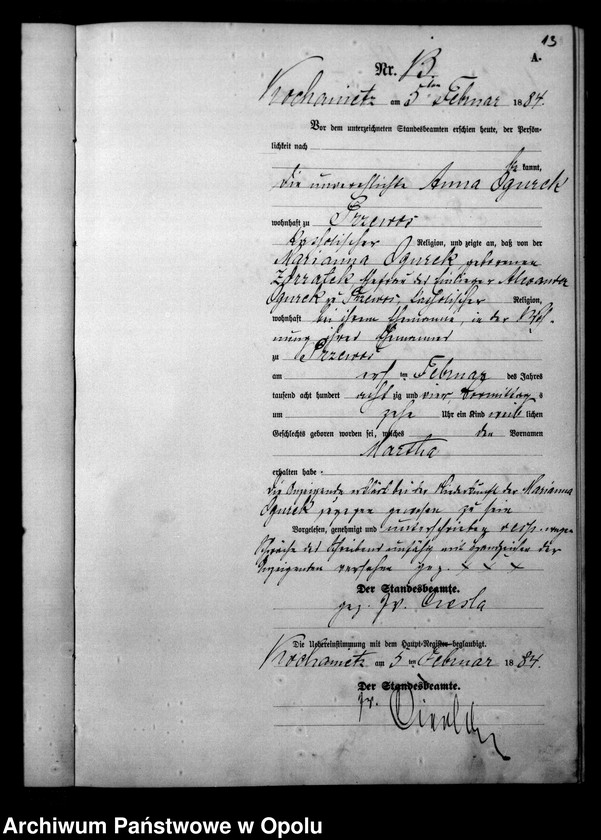 13
A.
Nr. 13.
am 5ten Februar 1884.
Vor dem unterzeichneten Standesbeamten erschien heute, der Persön-
lichkeit nach
kannt,
die unverehlichte Anna Ogurek
wohnhaft zu Przewos
katholischer Religion, und zeigte an, daß von der
Marianna Ogurek geborenen
Ehefrau des Einlieger Alexander
Ogurek zu Przewos, katholischer Religion,
wohnhaft bei ihrem Ehemanne, in der Woh-
nung ihres Ehemannes
zu Przewos
am ersten Februar des Jahres
tausend acht hundert achtzig und vier, Vormittags
um zehn Uhr ein Kind weiblichen
Geschlechts geboren worden sei, welches den Vornamen
Martha
erhalten habe.
Die Anzeigende erklärt bei der Niederkunft der Marianna
Ogurek zugegen gewesen zu sein
Vorgelesen, genehmigt und unterschrieben resp. wegen
des Schreibens unfähig mit Handzeichen der
Anzeigenden versehen gez. X X X
Der Standesbeamte.
gez. Fr. Ciesla
Die Uebereinstimmung mit dem Haupt-Register beglaubigt.
am 5ten Februar 1884.
Der Standesbeamte.
Fr.
Archiwum Państwowe w Opolu